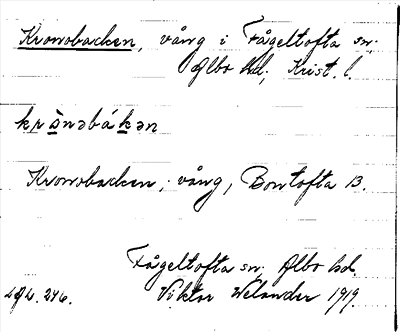 Kronobacken, vång i Fågeltofta sn;
Albo hd; Krist. l.
krɷ̀nəbákən
Kronobacken; vång, Bontofta 13.
Fågeltofta sn; Albo hd.
Viktor Welander 1919.